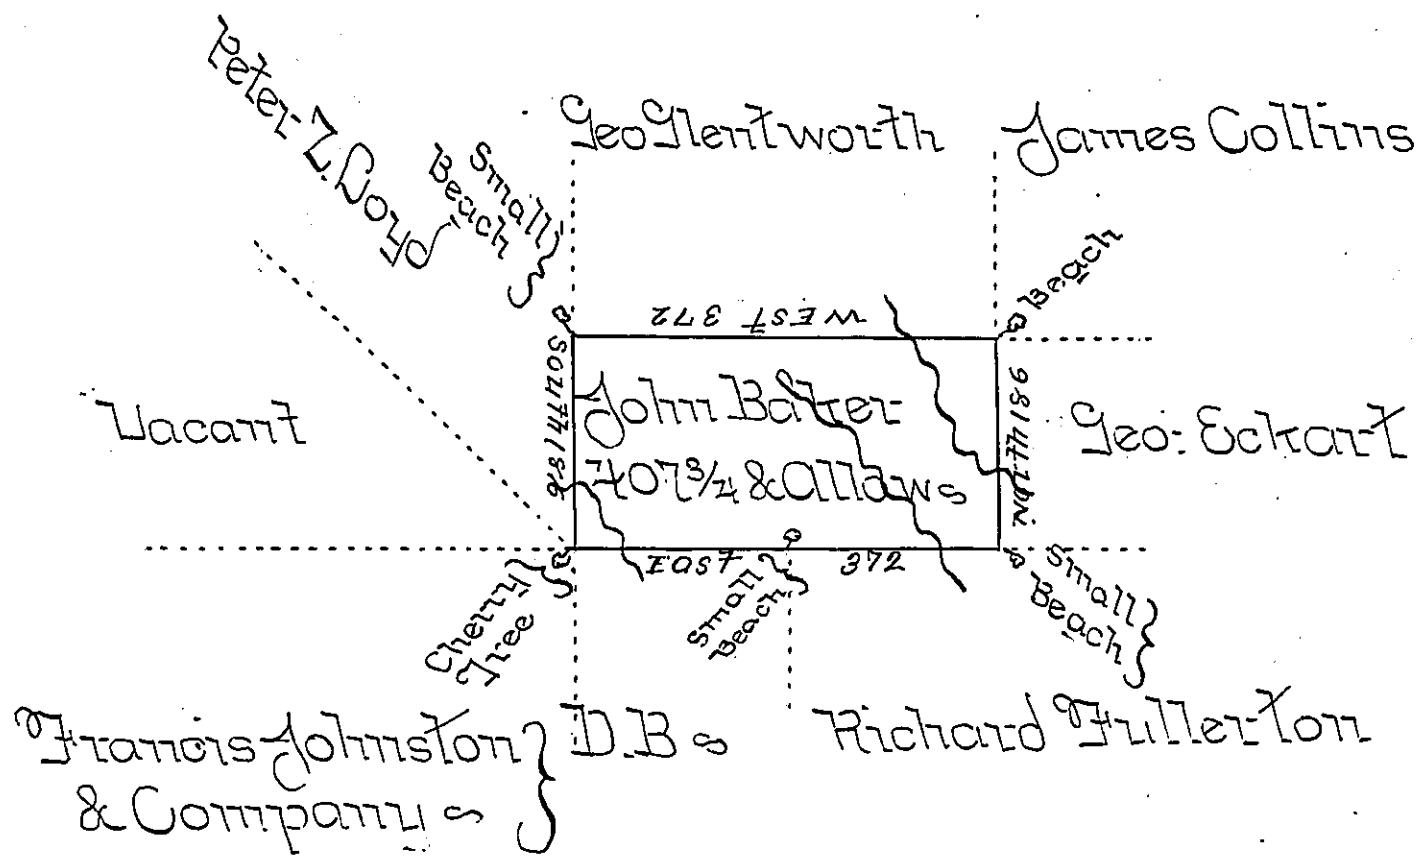 Peter Z. Loyd
Small
Beach
Geo Glentworth
James Collins
Beach
WEST 372
SOUTH 186
John Baker
407 3/4 & allaws
NORTH 186
Vacant
Geo: Eckart
EAST 372
Cherry
Tree
Small
Beach
Small
Beach
Francis Johnston
& Companys
D.Bs
Richard Fullerton